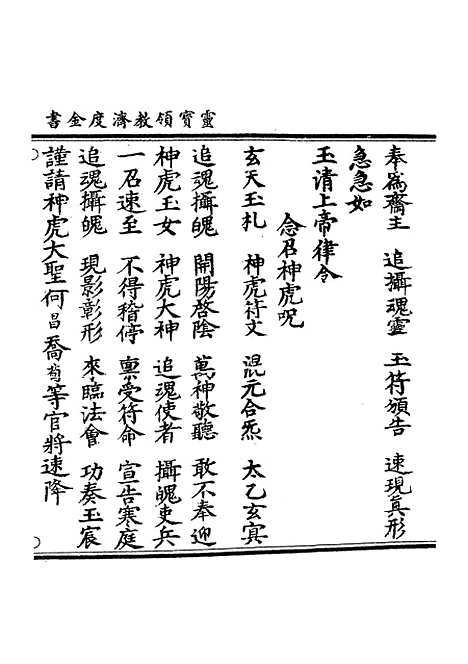 靈寳領教濟度金書
奉為齋主　追攝魂靈　玉符頒告　速現真形
急急如
玉清上帝律令
念召神虎呪
玄天玉札　神虎符文　混元合炁　太乙玄冥
追魂攝魄　開陽啓陰　萬神敬聽　敢不奉迎
神虎玉女　神虎大神　追魂使者　攝魄吏兵
一召速至　不得稽停　禀受符命　宣告寒庭
追魂攝魄　現影彰形　來臨法會　功奏玉宸
謹請神虎大聖何昌喬蒭等官將速降